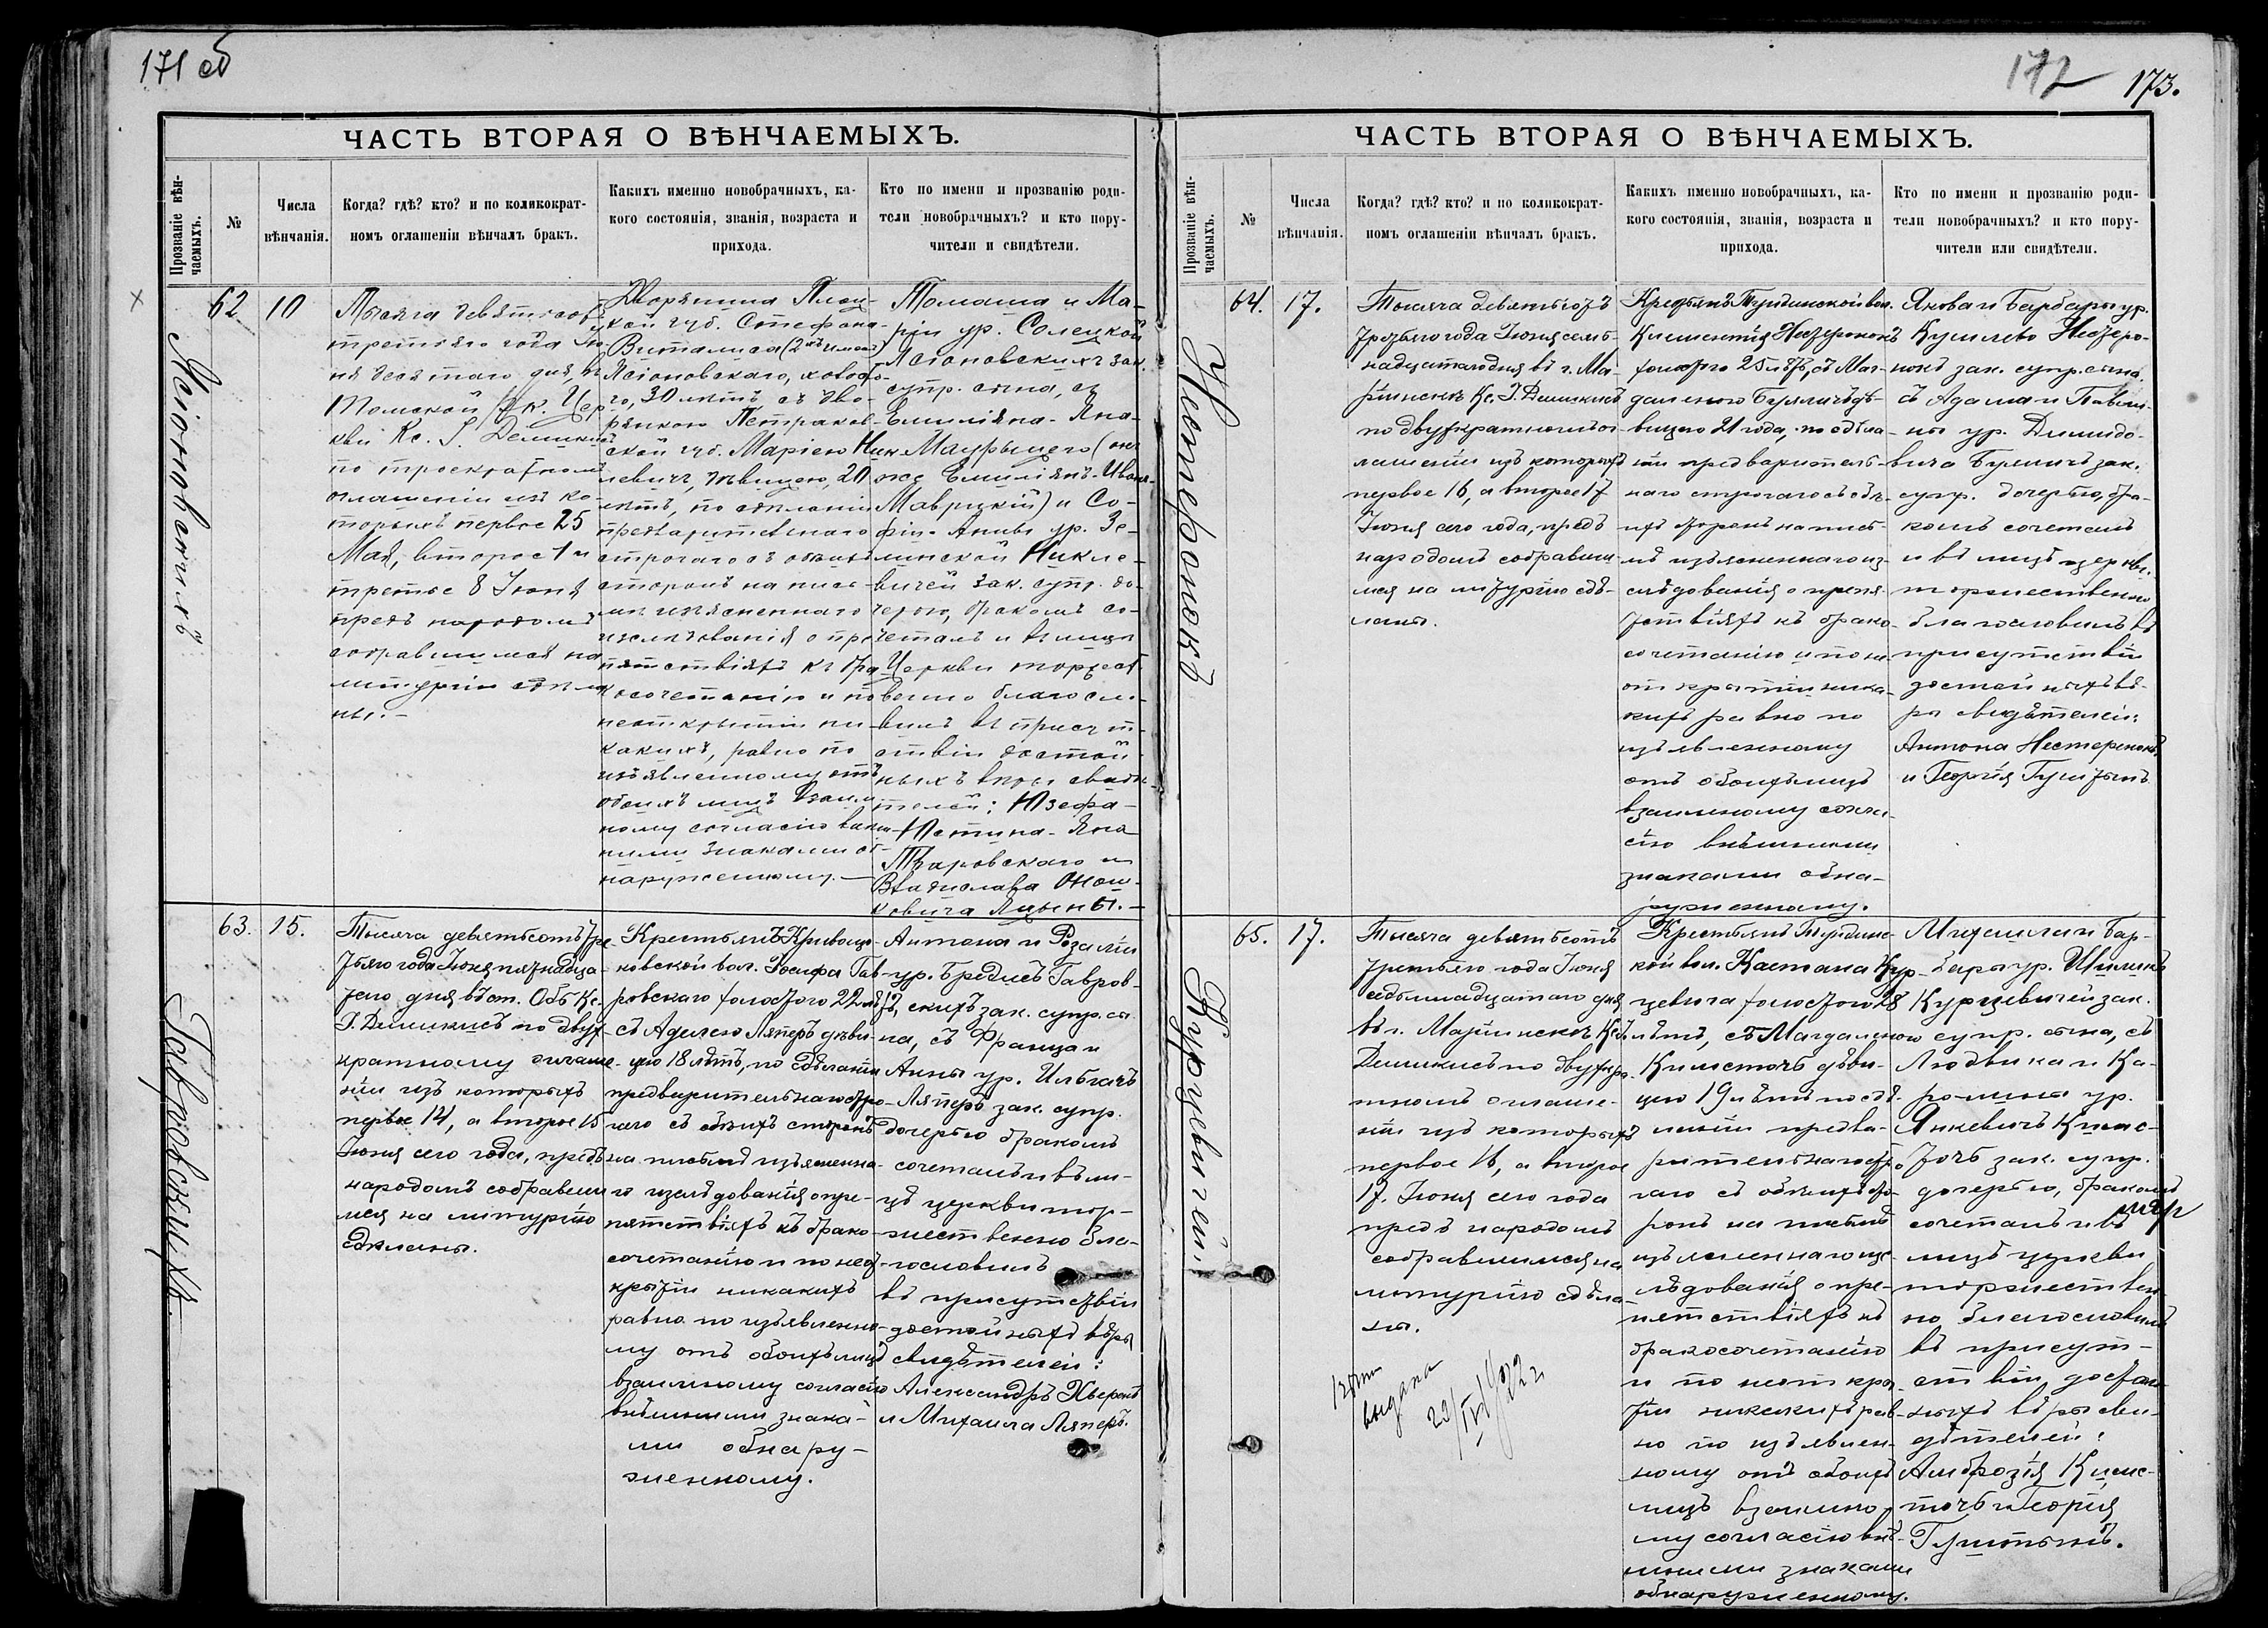 171 об
ЧАСТЬ ВТОРАЯ О ВѢНЧАЕМЫХЪ.
Прозваніе вѣн-
чаемыхъ.
№
Числа
вѣнчанія.
Когда? гдѣ? кто? и по коликократ-
номъ оглашеніи вѣнчалъ бракъ.
Какихъ именно новобрачныхъ, ка-
кого состоянія, званія, возраста и
прихода.
Кто по имени и прозванію роди-
тели новобрачныхъ? и кто пору-
чители и свидѣтели.
Ясіоновскихъ
62
10
Тысяча девятьсотъ
третьяго года Iю-
ня десятаго дня, въ
Томской Р. К. Цер
кви Кс. I. Демикисъ
по троекратномъ
оглашеніи изъ ко-
торыхъ первое 25
Мая, второе 1 и
третье 8 Iюня
предъ народомъ
собравшимся на
литургію сдѣла
ны.-
Дворянина Плоц-
кой губ. Стефана
Виталиса (2хъ именъ)
Ясіоновскаго, холосто-
го, 30 лѣтъ съ дво-
рянкою Петраков-
ской губ. Маріею Ник
левичъ, дѣвицею, 20
лѣтъ, по сдѣланіи
предварительнаго
строгаго съ обѣихъ
сторонъ на пись-
мѣ изъясненнаго
изслѣдованія о пре
пятствіяхъ къ бра
косочетанію и по
неоткрытіи ни-
какихъ, равно по
изъявленному отъ
обоихъ лицъ взаим
ному согласію внѣш-
ними знаками об-
наруженному.-
Томаша и Ма-
ріи ур. Солецкой
Ясіоновскихъ зак.
супр. сына, съ
Емиліяна-Яна-
Маурыцего (онъ
же Емиліянъ-Иванъ-
Маврицкій) и Со-
фіи-Анны ур. Зе-
линской Никле-
вичей зак. супр. до-
черью, бракомъ со-
четалъ и въ лицѣ
Церкви торжест
венно благосло-
вилъ въ присут-
ствіи достой-
ныхъ вѣры свидѣ-
телей: Юзефа-
Юстина-Яна
Тваровскаго и
Владислава Юш-
ковича Яцыны.-
Гавровскихъ.
63.
15.
Тысяча девятьсотъ тре
тьяго года Iюня пятнадца-
таго дня въ ст. Объ Кс.
I. Демикисъ по двух
кратному оглаше-
ніи изъ которыхъ
первое 14, а второе 15
Iюня сего года, предъ
народомъ собравшим
мся на литургію
сдѣланы.
Крестьянъ Кривощо-
ковской вол. Iосифа Гав
ровскаго холостого 22 лѣтъ,
съ Аделею Ляперъ дѣви-
цею 18 лѣтъ, по сдѣланіи
предварительнаго стро-
гаго съ обѣихъ сторонъ
на письмѣ изъясненна-
го изслѣдованія о пре-
пятствіяхъ къ брако-
сочетанію и по неот
крытіи никакихъ
равно по изъявленно-
му отъ обоихъ лицъ
взаимному согласію
внѣшними знака-
ми обнару-
женному.
Антона и Розаліи
ур. Бредисъ Гавров-
скихъ зак. супр. сы
на, съ Франца и
Анны ур. Ильгачъ
Ляперъ зак. супр.
дочерью бракомъ
сочеталъ и въ ли-
цѣ церкви тор-
жественно бла-
гословилъ
въ присутствіи
достойныхъ вѣры
свидѣтелей:
Александръ Хверонъ
и Михаила Ляперъ.
172
173.
ЧАСТЬ ВТОРАЯ О ВѢНЧАЕМЫХЪ.
Прозваніе вѣн-
чаемыхъ.
№
Числа
вѣнчанія.
Когда? гдѣ? кто? и по коликократ-
номъ оглашеніи вѣнчалъ бракъ.
Какихъ именно новобрачныхъ, ка-
кого состоянія, званія, возраста и
прихода.
Кто по имени и прозванію роди-
тели новобрачныхъ? и кто пору-
чители или свидѣтели.
Нестеронокъ
64.
17.
Тысяча девятьсотъ
третьяго года Iюня сем-
надцатаго дня въ г. Ма-
ріинскѣ Кс. I. Демикисъ
по двухкратномъ ог-
лашеніи изъ которыхъ
первое 16, а второе 17
Iюня сего года, предъ
народомъ собравши-
мся на литургію сдѣ-
ланы.
Крестьянъ Тундинской вол.
Климентія Нестеронокъ
холостого 25 лѣтъ, съ Маг-
даленою Буяличъ дѣ-
вицею 21 года, по сдѣла-
ніи предваритель-
наго строгаго съ обѣ-
ихъ сторонъ на пись
мѣ изъясненнаго из-
слѣдованія о препя-
тствіяхъ къ брако-
сочетанію и по не-
открытіи ника-
кихъ равно по
изъявленному
отъ обоихъ лицъ
взаимному согла-
сію внѣшними
знаками обна-
руженному.
Якова и Барбары ур.
Кушлево Нестеро-
нокъ зак. супр. сына
съ Адама и Павли-
ны ур. Димидо-
вичъ Буяличъ зак.
супр. дочерью, бра-
комъ сочеталъ
и въ лицѣ церкви
торжественно
благословилъ въ
присутствіи
достойныхъ вѣ-
ры свидѣтелей:
Антона Нестеренокъ
и Георгія Глуштынъ
Курцевичей.
65.
17.
Тысяча девятьсотъ
третьяго года Iюня
седьмнадцатаго дня
въ г. Маріинскѣ Кс. I.
Демикисъ по двухкра-
тномъ оглаше-
ніи изъ которыхъ
первое 16, а второе
17 Iюня сего года
предъ народомъ
собравшимся на
литургію сдѣла-
ны.
выдана
20/IV 1922
Крестьянъ Тундинс-
кой вол. Каетана Кур-
цевича холостого 28
лѣтъ, съ Магдаленою
Климсточъ дѣви-
цею 19 лѣтъ по сдѣ-
ланіи предва-
рительнаго стро
гаго съ обѣихъ сто-
ронъ на письмѣ
изъясненнаго изс-
лѣдованія о пре-
пятствіяхъ къ
бракосочетанію
и по неоткры-
тіи никакихъ рав-
но по изъявлен-
ному отъ обоихъ
лицъ взаимно-
му согласію внѣ-
шними знаками
обнаруженному.
Михаила и Бар-
бары ур. Шилакъ
Курцевичей зак.
супр. сына, съ
Людвика и Ка-
ролины ур.
Янкевичъ Климс-
точъ зак. супр.
дочерью, бракомъ
сочеталъ и въ
лицѣ церкви
торжествен-
но благословилъ
въ присут-
ствіи достой-
ныхъ вѣры сви-
дѣтелей:
Амброзія Климс-
точъ и Георгія
Глуштынъ.